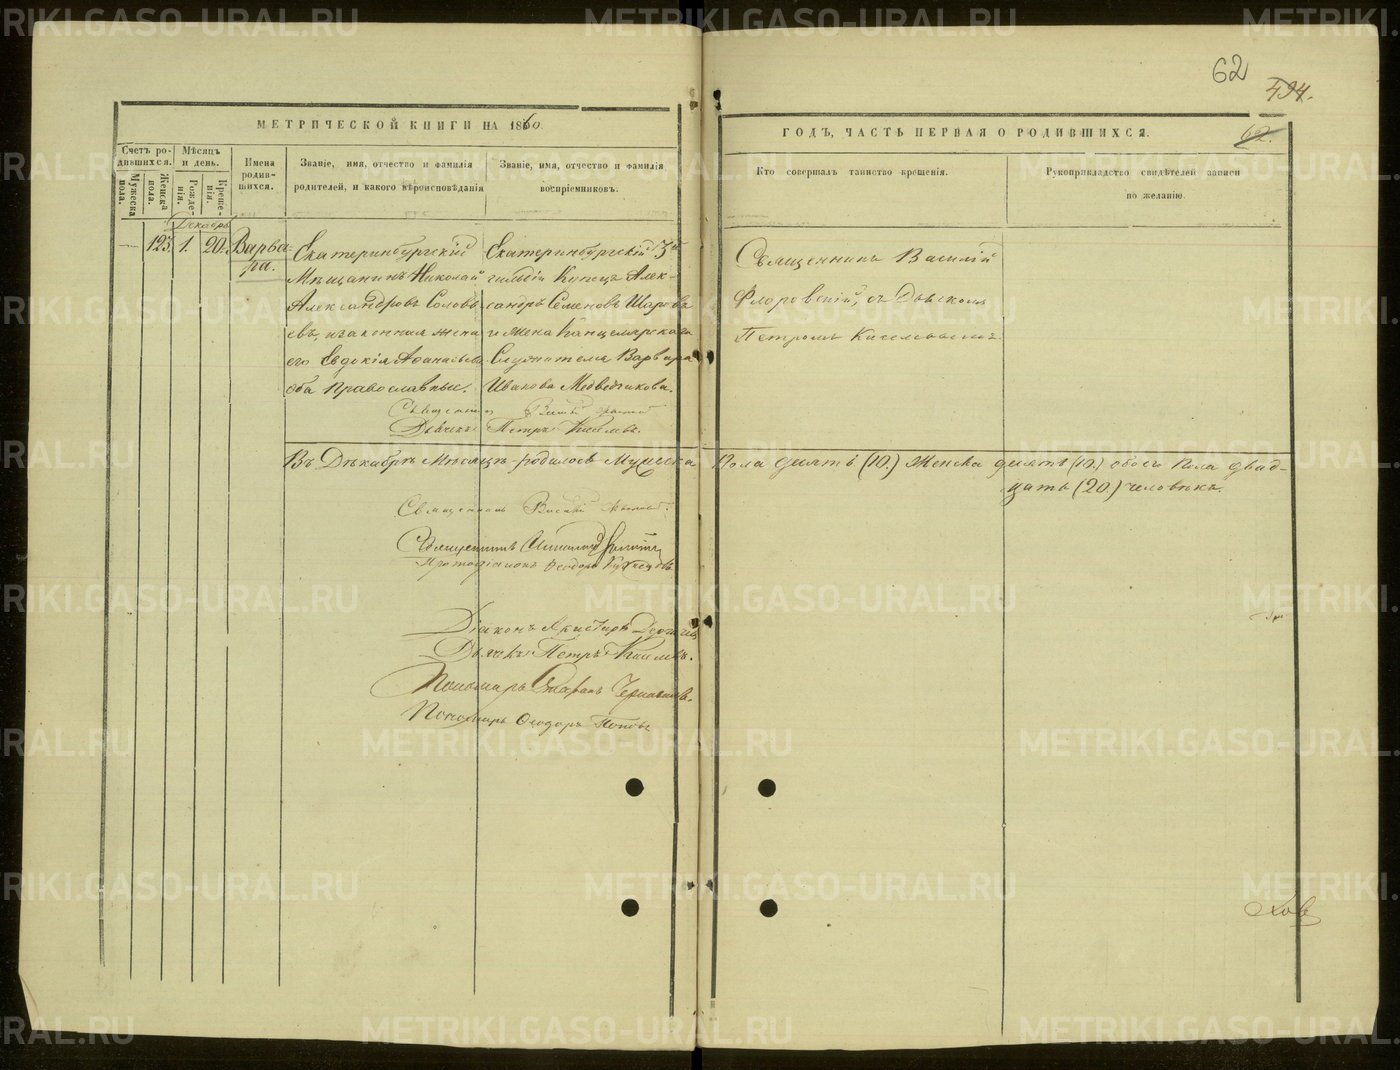 62
494.
62.
МЕТРИЧЕСКОЙ КНИГИ НА 1860
ГОДЪ, ЧАСТЬ ПЕРВАЯ О РОДИВШИХСЯ.
Счетъ родившихся.
Мужеска пола.
Женска пола.
Мѣсяцъ и день.
Рожденія.
Крещенія.
Имена родившихся.
Званіе, имя, отчество и фамилія
родителей, и какого вѣроисповѣданія
Званіе, имя, отчество и фамилія
воспріемниковъ.
Кто совершалъ таинство крещенія.
Рукоприкладство свидѣтелей записи
по желанію.
Декабрь
123. 1. 20. Варва-
ра.
Екатеринбургскій
Мѣщанинъ Николай
Александровъ Соловь-
евъ, и законная жена
его Евдокія Афанасьева
оба православные.
Екатеринбургскій 3й
гильдіи Купецъ Алек-
сандръ Семеновъ Шаровъ
и жена Канцелярскаго
Служителя Варвара
Иванова Медведчикова.
Священникъ Василій
Флоровскій, съ Дьячкомъ
Петромъ Киселевымъ.
Священникъ Василій
Дьячекъ Петръ Киселевъ.
Въ Декабрѣ Мѣсяцѣ родилось Мужеска Пола десять (10.) Женска десять (10.) обоего Пола двад-
цать (20.) человѣкъ.
Священникъ Василій
Священникъ
Протодіаконъ Феодоръ
Діаконъ
Дьячекъ Петръ Киселевъ.
Пономарь
Пономарь Феодоръ Поповъ
METRIKI.GASO-URAL.RU